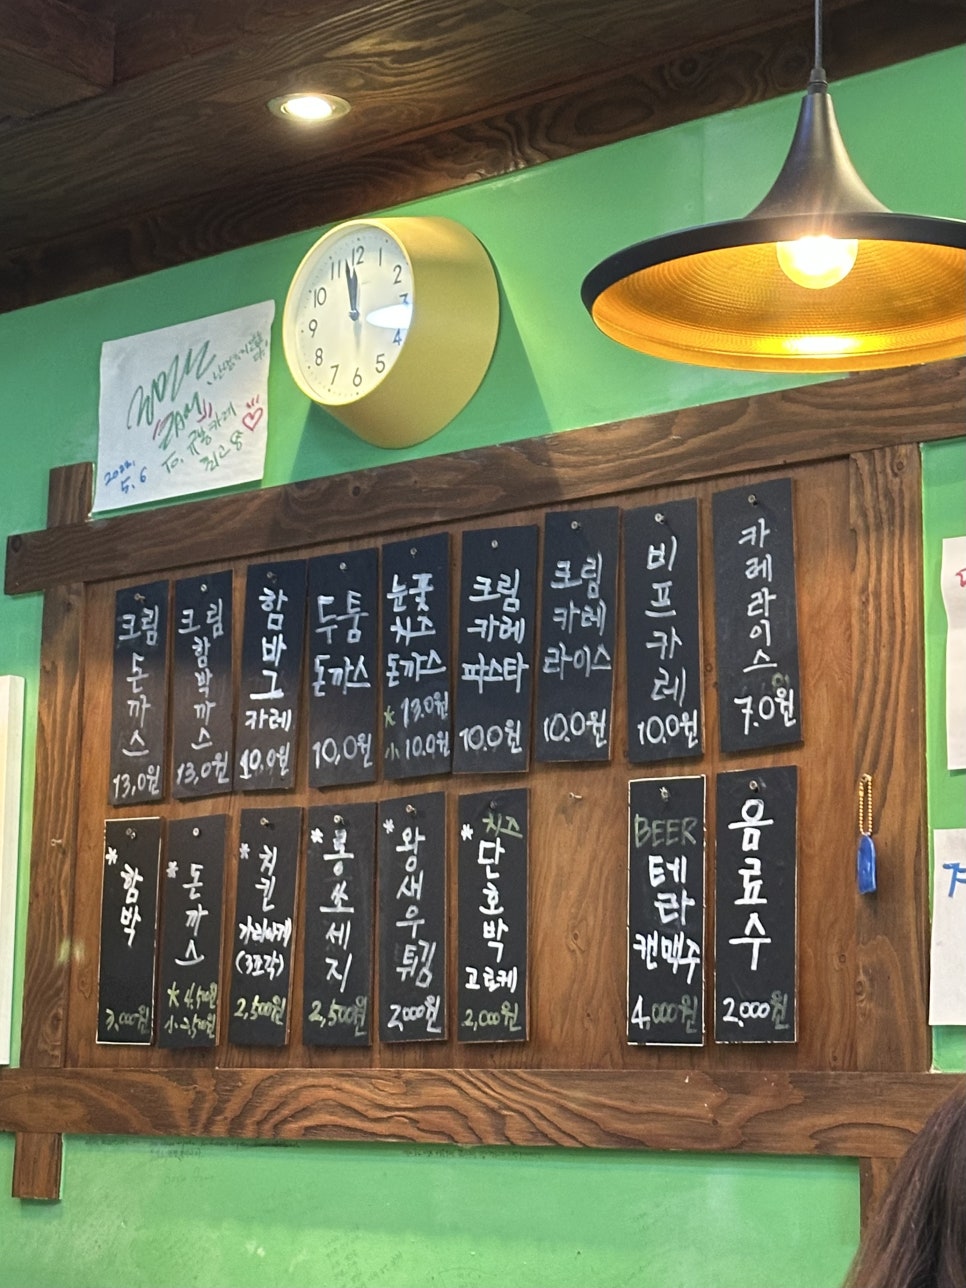 11 12 1 2 3 4 5 6 7 8 9 10
To. 규동카레
최고용
2022.
5. 6
크림
돈까스
13,0원
크림
함박까스
13,0원
함바그
카레
10,0원
두툼
돈까스
10,0원
눈꽃
치즈
돈까스
* 13.0원
小 10.0원
크림
카레
파스타
10.0원
크림
카레
라이스
10.0원
비프카레
10.0원
카레라이스
7.0원
* 함박
3,000원
* 돈까스
* 4,500원
小 2,500원
* 치킨
가라아게
(3조각)
2,500원
* 롱쏘세지
2,500원
* 왕새우
튀김
2,000원
* 치즈
단호박
고로케
2,000원
BEER
테라
캔맥주
4,000원
음료수
2,000원